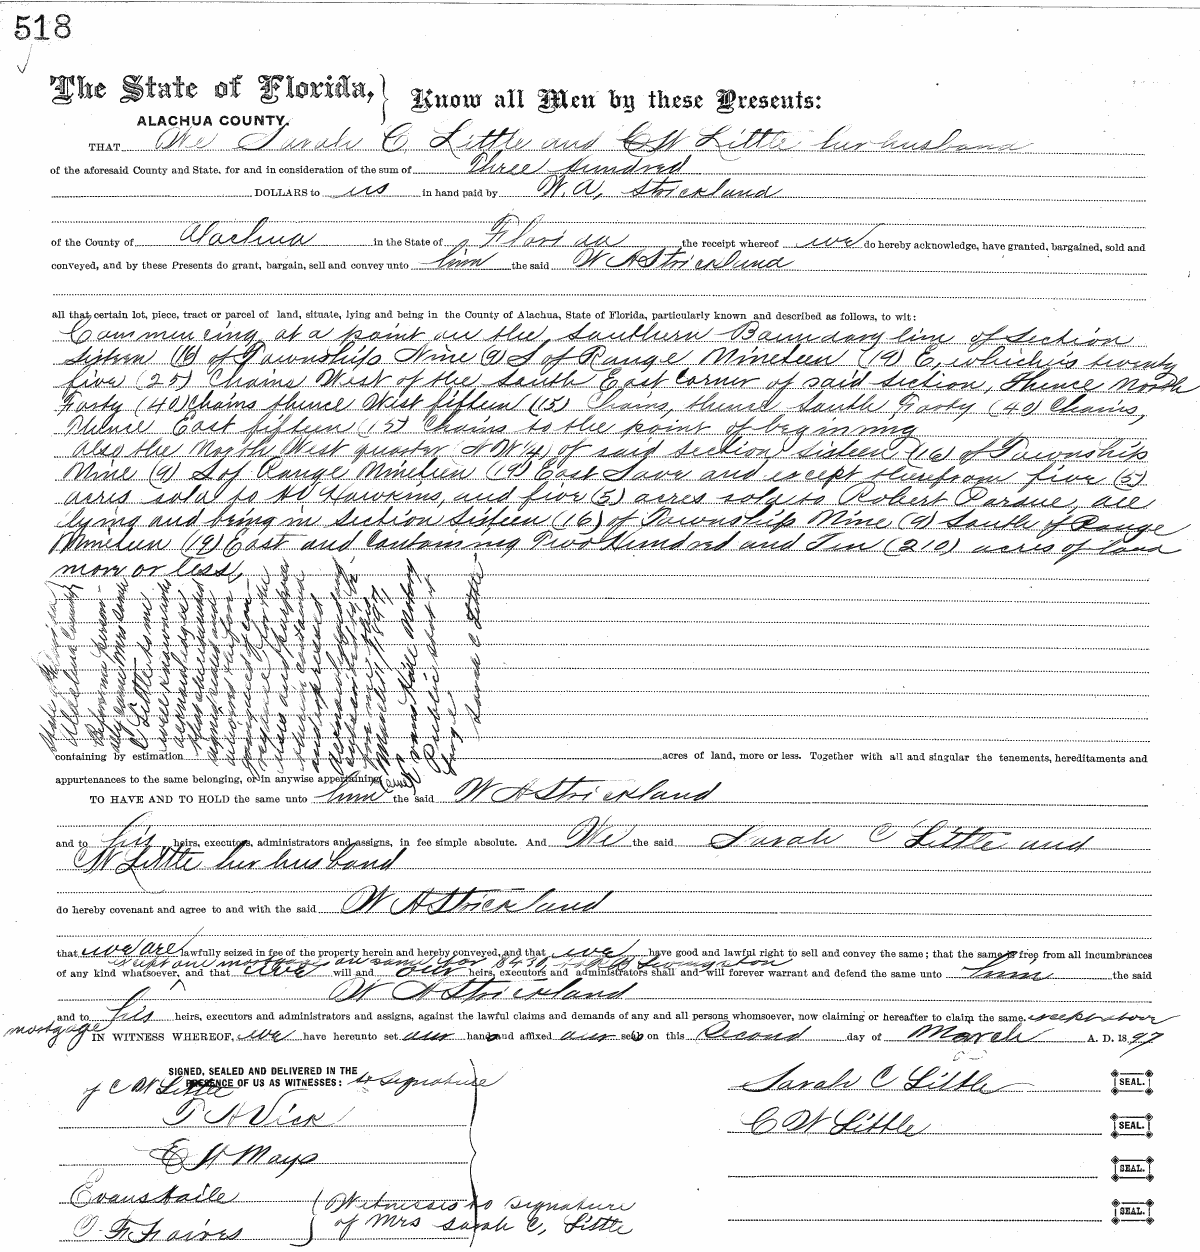 518
The State of Florida, Know all Men by these Presents:
ALACHUA COUNTY.
THAT We Sarah C. Little and C W Little her husband
of the aforesaid County and State, for and in consideration of the sum of Three Hundred
DOLLARS to us in hand paid by W. A. Strickland
of the County of Alachua in the State of Florida the receipt whereof we do hereby acknowledge, have granted, bargained, sold and
conveyed, and by these Presents do grant, bargain, sell and convey unto him the said W A Strickland
all that certain lot, piece, tract or parcel of land, situate, lying and being in the County of Alachua, State of Florida, particularly known and described as follows, to wit:
Commencing at a point on the Southern Boundary line of Section
Sixteen (16) of Township Nine (9) S of Range Nineteen (19) E, which is twenty
five (25) Chains West of the South East Corner of said Section, thence North
Forty (40) Chains thence West fifteen (15) Chains, thence South Forty (40) Chains,
thence East fifteen (15) Chains to the point of beginning
also the North West quarter N W ¼ of said section Sixteen (16) of Township
Nine (9) S of Range Nineteen (19) East Save and except therefrom five (5)
acres sold to Hawkins, and five (5) acres sold to Robert Pardue, all
lying and being in Section Sixteen (16) of Township Nine (9) South of Range
Nineteen (19) East and Containing Two Hundred and Ten (210) acres of land
more or less,
State of Florida
Alachua County
Before me person-
ally came Mrs Sarah
C Little to me
well known and
acknowledged
that she executed
for the
uses and purposes
therein contained
and expressed
March 11 1897
Evans Haile Notary
Public State at
Large
Sarah C Little
containing by estimation acres of land, more or less. Together with all and singular the tenements, hereditaments and
appurtenances to the same belonging, or in anywise appertaining
TO HAVE AND TO HOLD the same unto him the said W A Strickland
and to his heirs, executors, administrators and assigns, in fee simple absolute. And We the said Sarah C Little and
C W Little her husband
do hereby covenant and agree to and with the said W A Strickland
that we are lawfully seized in fee of the property herein and hereby conveyed, and that we have good and lawful right to sell and convey the same; that the same is free from all incumbrances
except one mortgage on same for
of any kind whatsoever, and that we will and our heirs, executors and administrators shall and will forever warrant and defend the same unto him the said
W A Strickland
and to his heirs, executors and administrators and assigns, against the lawful claims and demands of any and all persons whomsoever, now claiming or hereafter to claim the same. except above
mortgage
IN WITNESS WHEREOF, we have hereunto set our hands and affixed our seals on this Second day of March A. D. 1897
SIGNED, SEALED AND DELIVERED IN THE
PRESENCE OF US AS WITNESSES: to signature
of C W Little
T A Vick
E H Mays
Evans Haile
Witnesses to signature
of Mrs Sarah C, Little
Sarah C Little SEAL.
C W Little SEAL.
SEAL.
SEAL.